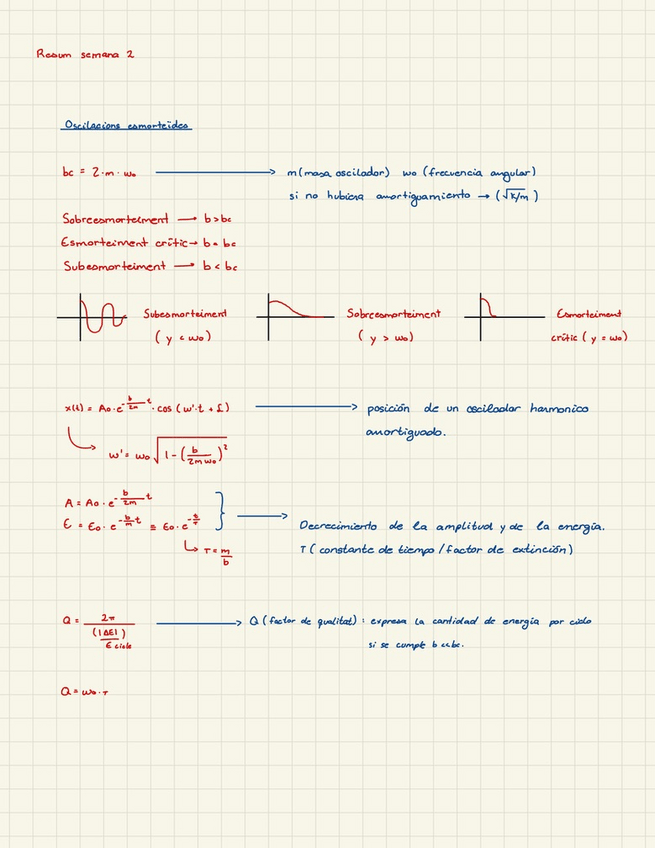 Resum semana 2
Oscilacions esmorteïdes
bc = 2·m·ωo → m(masa oscilador) ωo (frecuencia angular)
si no hubiera amortiguamiento → (√k/m)
Sobreesmorteiment → b>bc
Esmorteiment crític → b=bc
Subesmorteiment → b<bc
Subesmorteiment Sobreesmorteiment Esmorteiment
(γ < ωo) (γ > ωo) crític (γ = ωo)
x(t) = Ao·e^(-b/2m t)·cos(ω'·t + δ) → posición de un oscilador harmonico
amortiguado.
ω' = ωo √(1-(b/2mωo)²)
A = Ao·e^(-b/2m t)
E = Eo·e^(-b/m t) ≡ Eo·e^(-t/τ) → Decrecimiento de la amplitud y de la energía.
τ = m/b τ (constante de tiempo / factor de extinción)
Q = 2π/((|ΔE|)/E ciclo) → Q (factor de qualitat) : expresa la cantidad de energía por ciclo
si se cumple b<<bc.
Q = ωo·τ